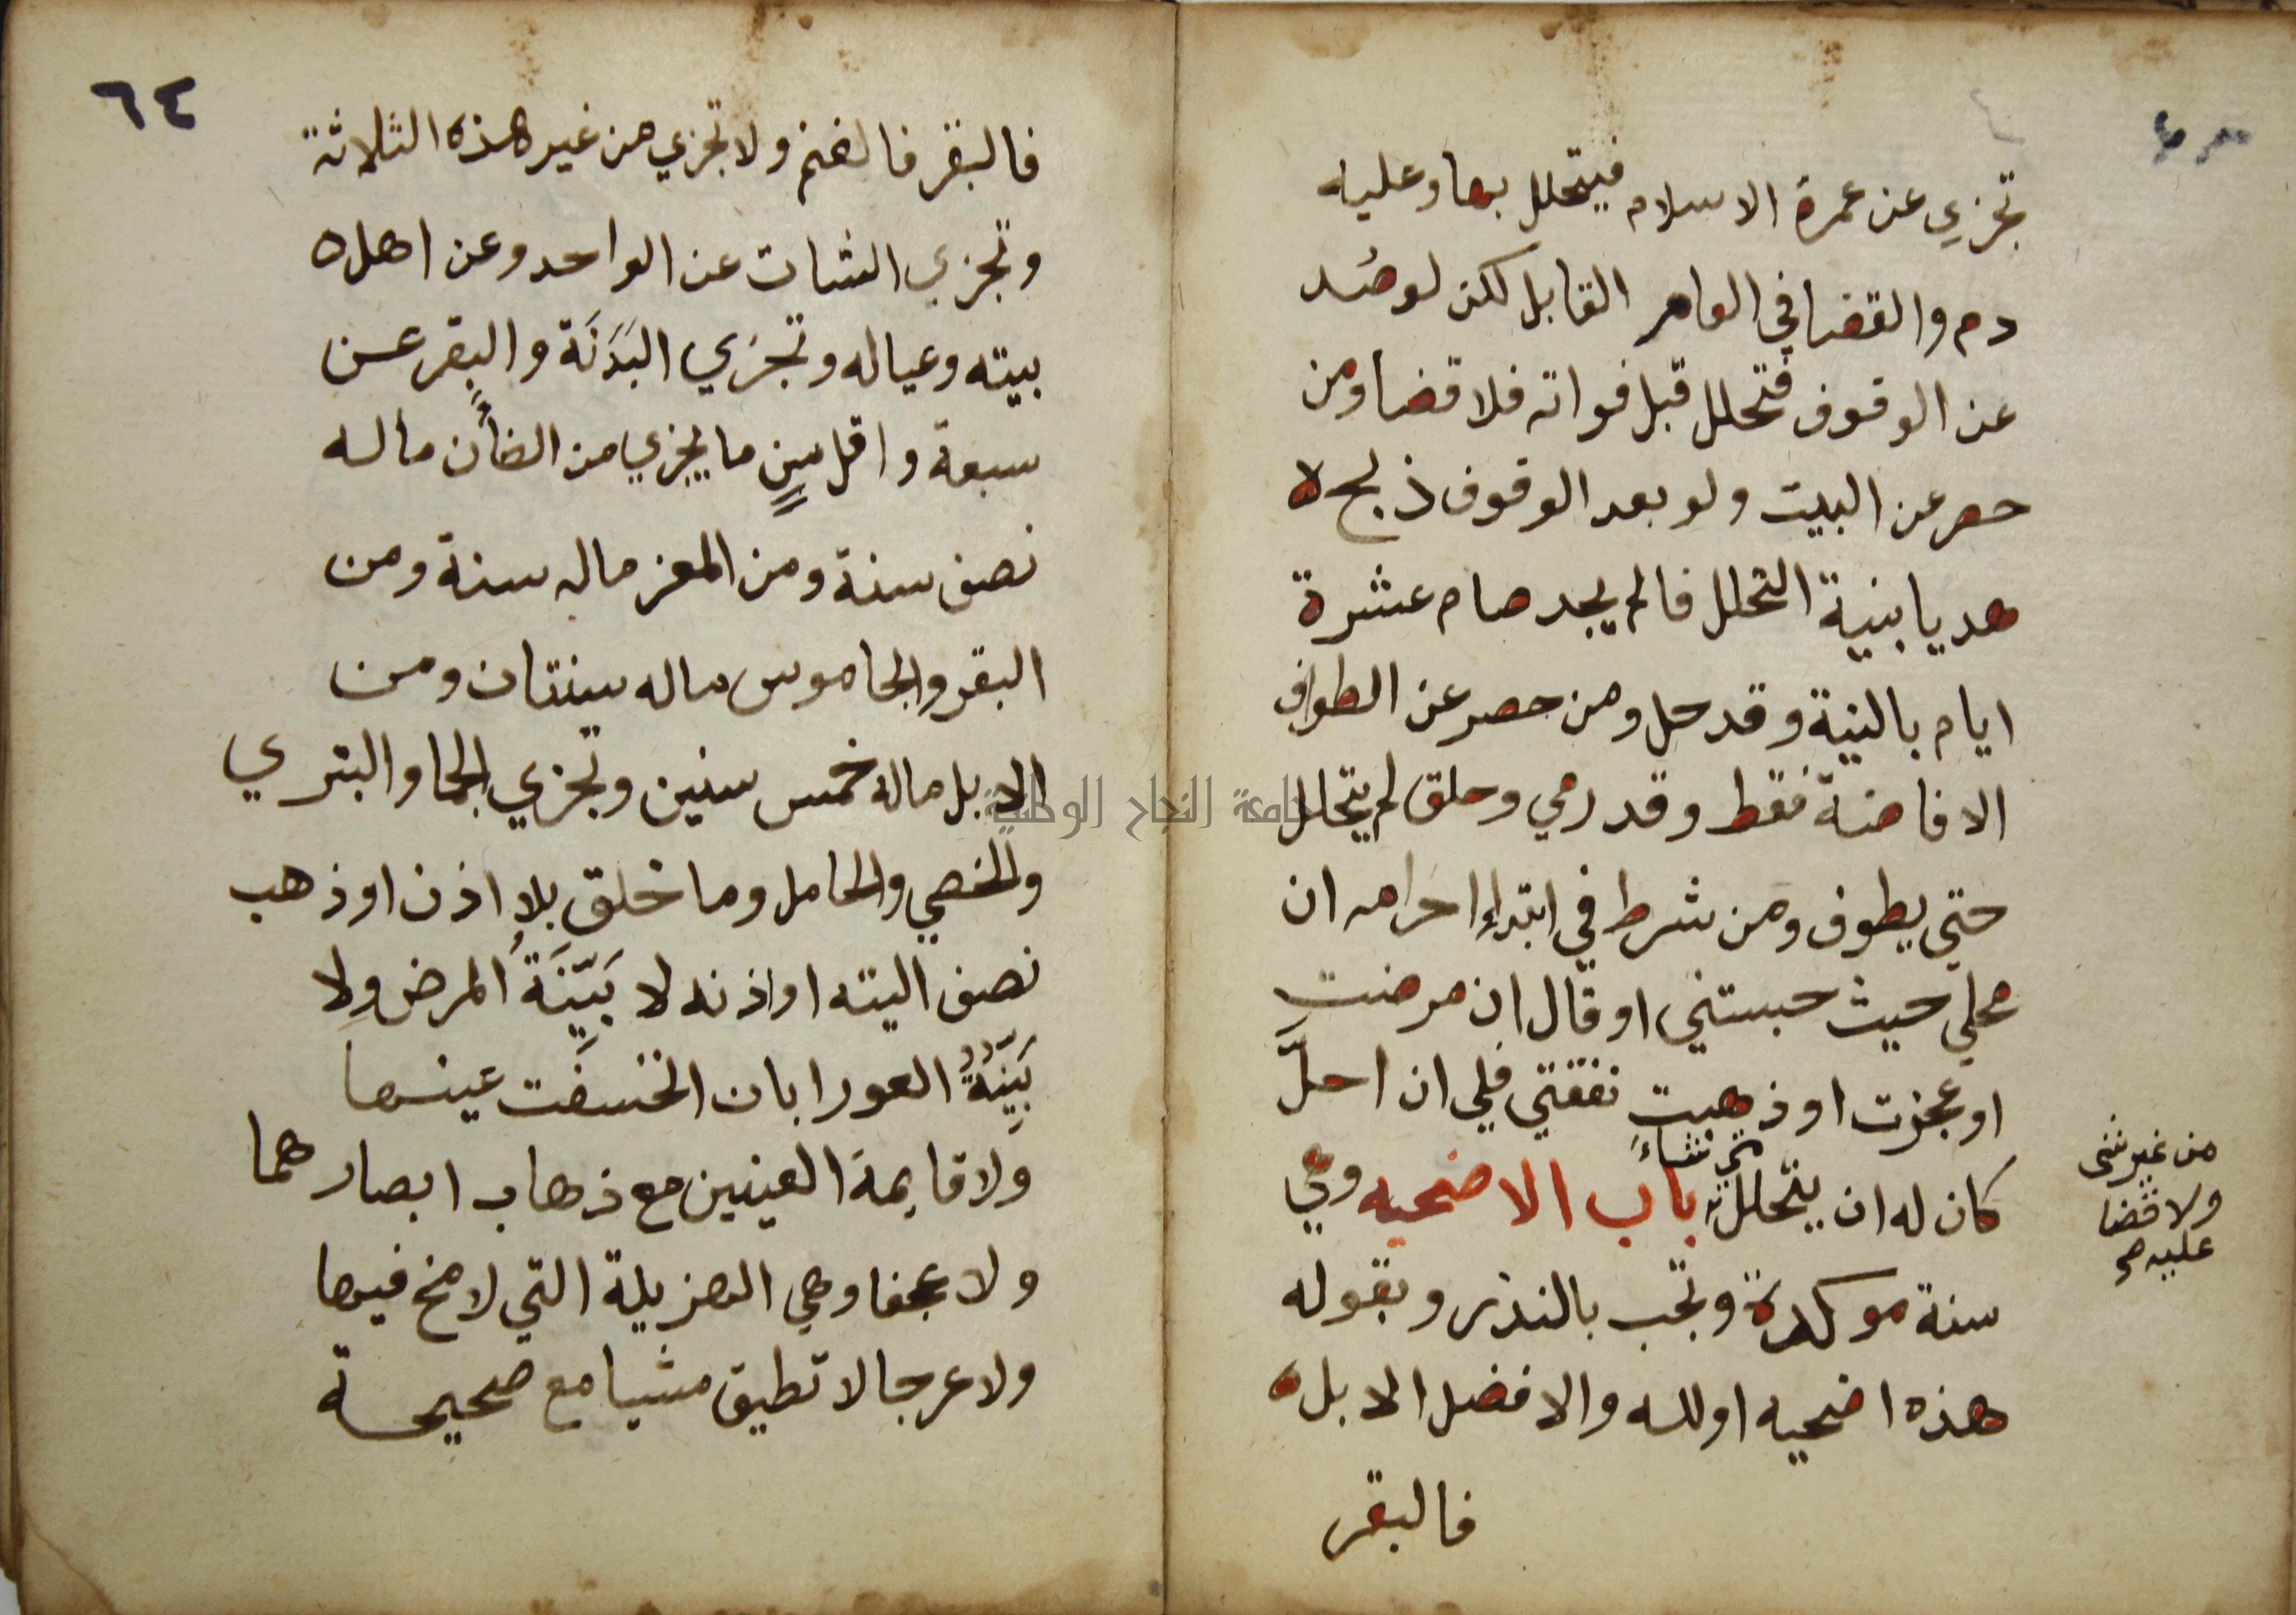 تجزي عن عمرة الاسلام فيتحلل بها وعليه
دم والقضا في العام القابل لكن لو صُد
عن الوقوف فتحلل قبل فواته فلا قضا ومن
حصر عن البيت ولو بعد الوقوف ذبح
هديا بنية التحلل فالم يجد صام عشرة
ايام بالنية وقد حل ومن حصر عن الطواف
الافاضة فقط وقد رمي وحلق لم يتحلل
حتى يطوف ومن شرط في ابتداء احرامه ان
محلي حيث حبستني او قال ان مرضت
او عجزت او ذهبت نفقتي فلي ان احلَّ
كان له ان يتحلل متى شاء باب الاضحيه وهي
من غير شى
ولا قضا
عليه صح
سنة موكدة وتجب بالنذر وبقوله
هذه اضحيه او لله والافضل الابل
فالبقر
٦٤
فالبقر فالغنم ولا تجزي من غير هذه الثلاثة
وتجزي الشات عن الواحد وعن اهل
بيته وعياله وتجزي البَدَنَة والبقر عن
سبعة واقل سنٍ ما يجزي من الضأن ماله
نصف سنة ومن المعز ماله سنة ومن
البقر والجاموس ماله سنتان ومن
الابل ماله خمس سنين وتجزي الجما والبتري
والخصي والحامل وما خلق بلا اذن او ذهب
نصف اليته او اذنه لا بَيّنَةُ المرض ولا
بَيّنَةُ العورا بان انخسفت عينها
ولا قايمة العينين مع ذهاب ابصارهما
ولا عجفا وهي الهزيلة التي لا مخ فيها
ولا عرجا لا تطيق مشيا مع صحيحة
جامعة النجاح الوطنية